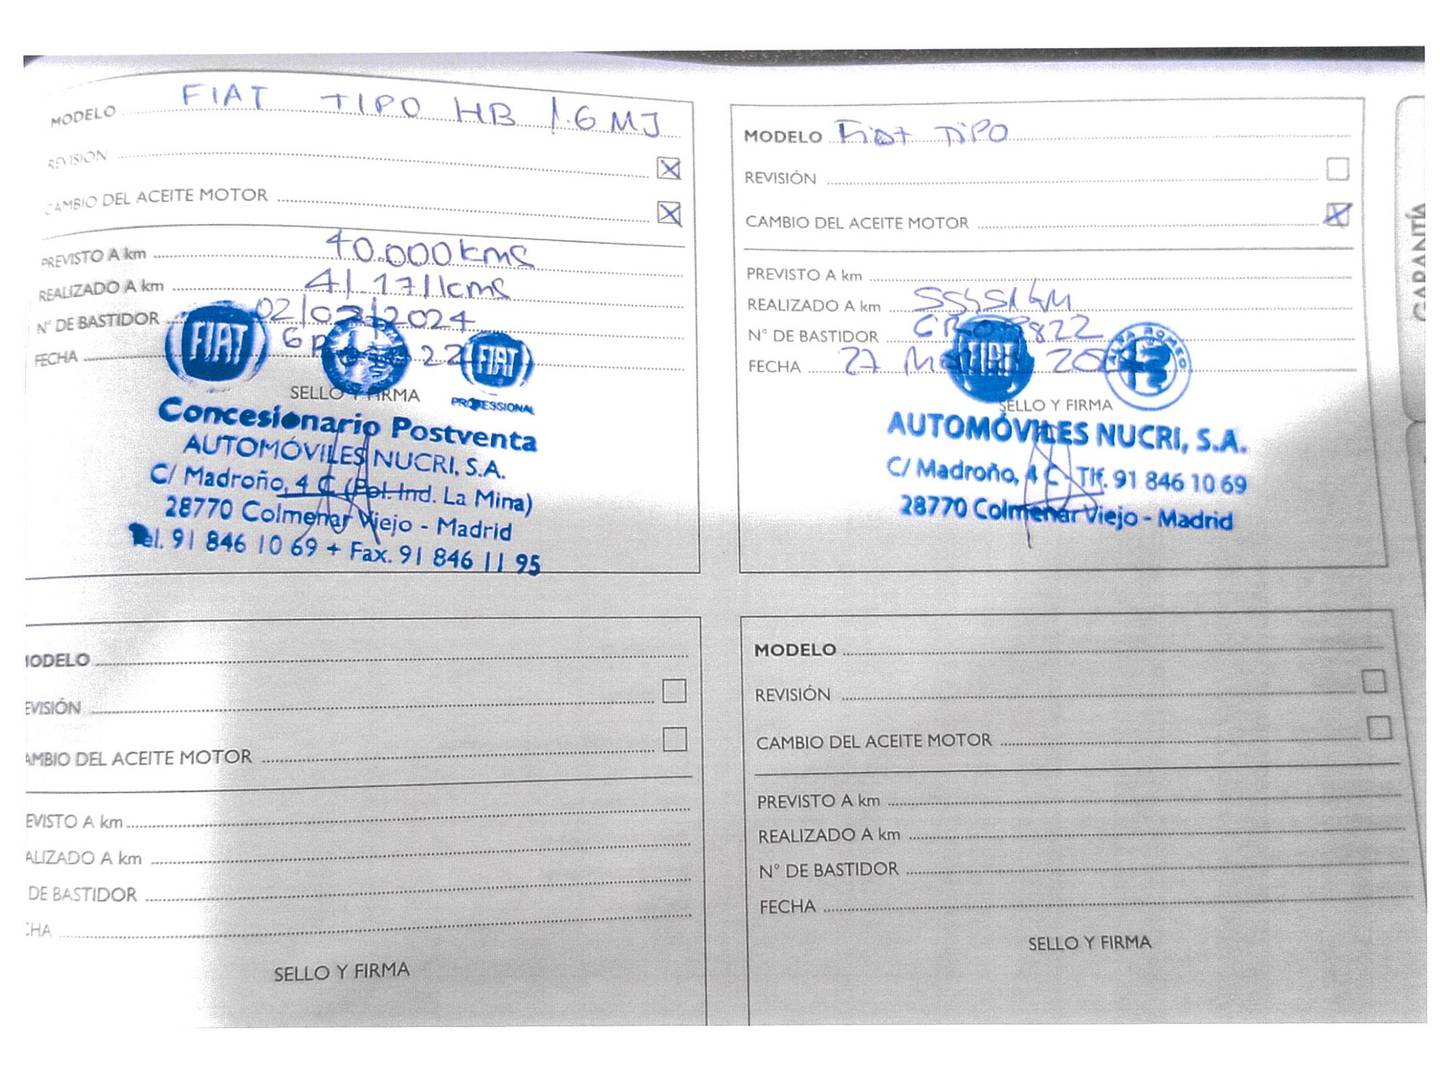 MODELO FIAT TIPO HB 1.6 MJ
REVISIÓN
CAMBIO DEL ACEITE MOTOR
PREVISTO A km 40.000 kms
REALIZADO A km 41.171 kms
N° DE BASTIDOR 02/02/2024
FECHA
FIAT
FIAT
SELLO Y FIRMA
PROFESSIONAL
Concesionario Postventa
AUTOMÓVILES NUCRI, S.A.
C/ Madroño, 4 C (Pol. Ind. La Mina)
28770 Colmenar Viejo - Madrid
Tel. 91 846 10 69 + Fax. 91 846 11 95
MODELO Fiat TiPO
REVISIÓN
CAMBIO DEL ACEITE MOTOR
PREVISTO A km
REALIZADO A km
N° DE BASTIDOR
FECHA 27
FIAT
ALFA ROMEO
SELLO Y FIRMA
AUTOMÓVILES NUCRI, S.A.
C/ Madroño, 4 C - Tlf. 91 846 10 69
28770 Colmenar Viejo - Madrid
GARANTÍA
MODELO
EVISIÓN
AMBIO DEL ACEITE MOTOR
EVISTO A km
ALIZADO A km
DE BASTIDOR
CHA
SELLO Y FIRMA
MODELO
REVISIÓN
CAMBIO DEL ACEITE MOTOR
PREVISTO A km
REALIZADO A km
N° DE BASTIDOR
FECHA
SELLO Y FIRMA